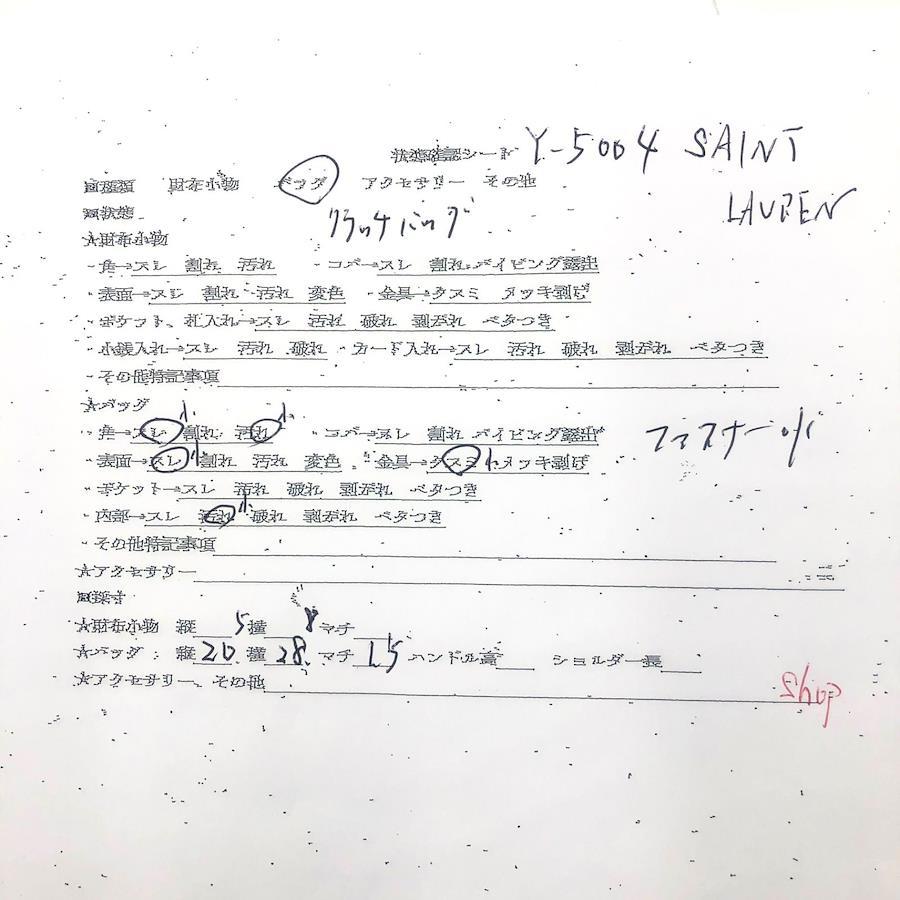 状態確認シート Y-5004 SAINT
LAUREN
■種類 財布小物 バッグ アクセサリー その他
■状態 クラッチバッグ
★財布小物
・角→スレ 割れ 汚れ ・コバ→スレ 割れ パイピング露出
・表面→スレ 割れ 汚れ 変色 ・金具→クスミ メッキ剥げ
・ポケット、札入れ→スレ 汚れ 破れ 剥がれ ベタつき
・小銭入れ→スレ 汚れ 破れ ・カード入れ→スレ 汚れ 破れ 剥がれ ベタつき
・その他特記事項
★バッグ 小 小
・角→スレ 割れ 汚れ ・コバ→スレ 割れ パイピング露出 ファスナーOK
・表面→スレ 小 割れ 汚れ 変色 ・金具→クスミ 小 メッキ剥げ
・ポケット→スレ 汚れ 破れ 剥がれ ベタつき
・内部→スレ 汚れ 小 破れ 剥がれ ベタつき
・その他特記事項
★アクセサリー
■採寸
★財布小物 縦 5 横 8 マチ
★バッグ：縦 20 横 28 マチ 1.5 ハンドル高 ショルダー長
★アクセサリー、その他
shop